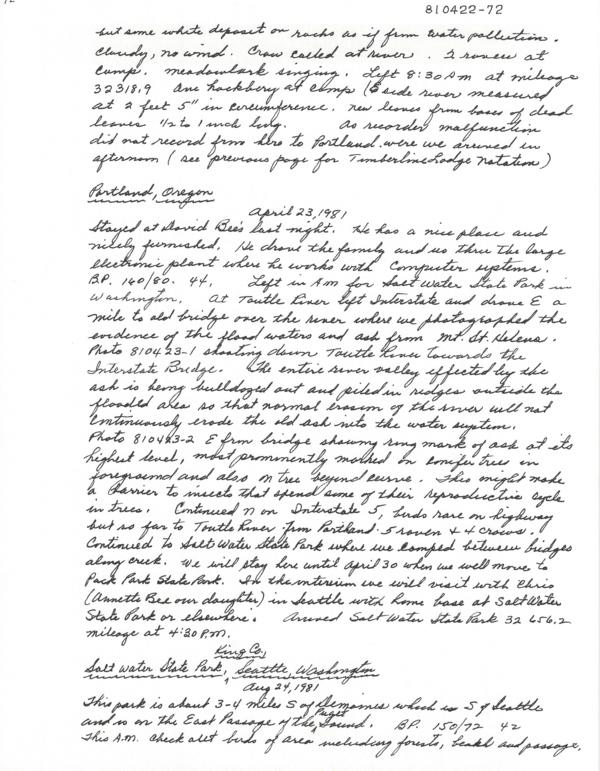 810422-72
but some white deposit on rocks as if from water pollution.
Cloudy, no wind. Crow called at river. 2 raven at
Camp. meadowlark singing. Left 8:30 AM at mileage
32318.9 One hackbery at camp (E side river measured
at 2 feet 5" in circumference. new leaves from bases of dead
leaves 1/2 to 1 inch long. As recorder malfunction
did not record from here to Portland were we arrived in
afternoon (see previous page for Timberline Lodge notation)
Portland, Oregon
April 23, 1981
Stayed at David Bee's last night. He has a nice place and
nicely furnished. He drove the family and us thru the large
electronic plant where he works with Computer systems.
B.P. 140/80. 44. Left in AM for Salt Water State Park in
Washington. At Toutle River left Interstate and drove E a
mile to old bridge over the river where we photographed the
evidence of the flood waters and ash from Mt. St. Helens.
Photo 810423-1 shooting down Toutle River towards the
Interstate Bridge. The entire river valley effected by the
ash is being bulldozed out and piled in ridges outside the
flooded area so that normal erosion of the river will not
continuously erode the old ash into the water system.
Photo 810423-2 E from bridge showing ring mark of ash at its
highest level, most prominently marked on conifer trees in
foreground and also on tree beyond curve. This might make
a barrier to insects that spend some of their reproductive cycle
in trees. Continued N on Interstate 5, birds rare on highway
but so far to Toutle River from Portland 5 raven & 4 crows.
Continued to Salt Water State Park where we camped between bridges
along creek. We will stay here until April 30 when we will move to
Pack Park State Park. In the interium we will visit with Chris
(Annette Bee our daughter) in Seattle with home base at Salt Water
State Park or elsewhere. Arrived Salt Water State Park 32 656.2
mileage at 4:30 P.M.
King Co,
Salt Water State Park, Seattle, Washington
Aug 24, 1981
This park is about 3-4 miles S of Demoines which is S of Seattle
and is on the East Passage of the Puget Sound. B.P. 150/72 42
This A.M. check alet birds of area including forests, beach and passage.